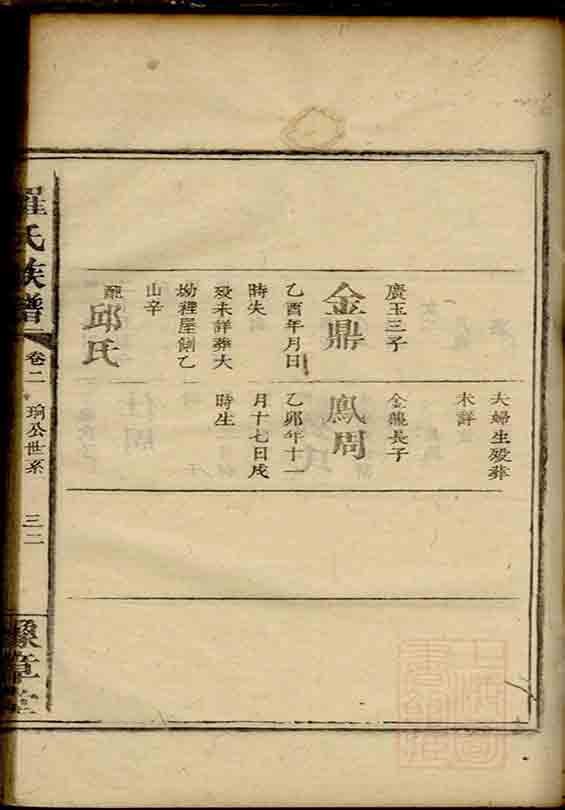 大婦生殁葬
未詳
廣玉三子
金鼎
乙酉年月日
時失
殁未詳葬大
坳裡屋側乙
山辛
配
邱氏
金龍長子
鳳周
乙卯年十一
月十七日戌
時生
羅氏族譜
卷二
珣公世系
三二
豫章堂